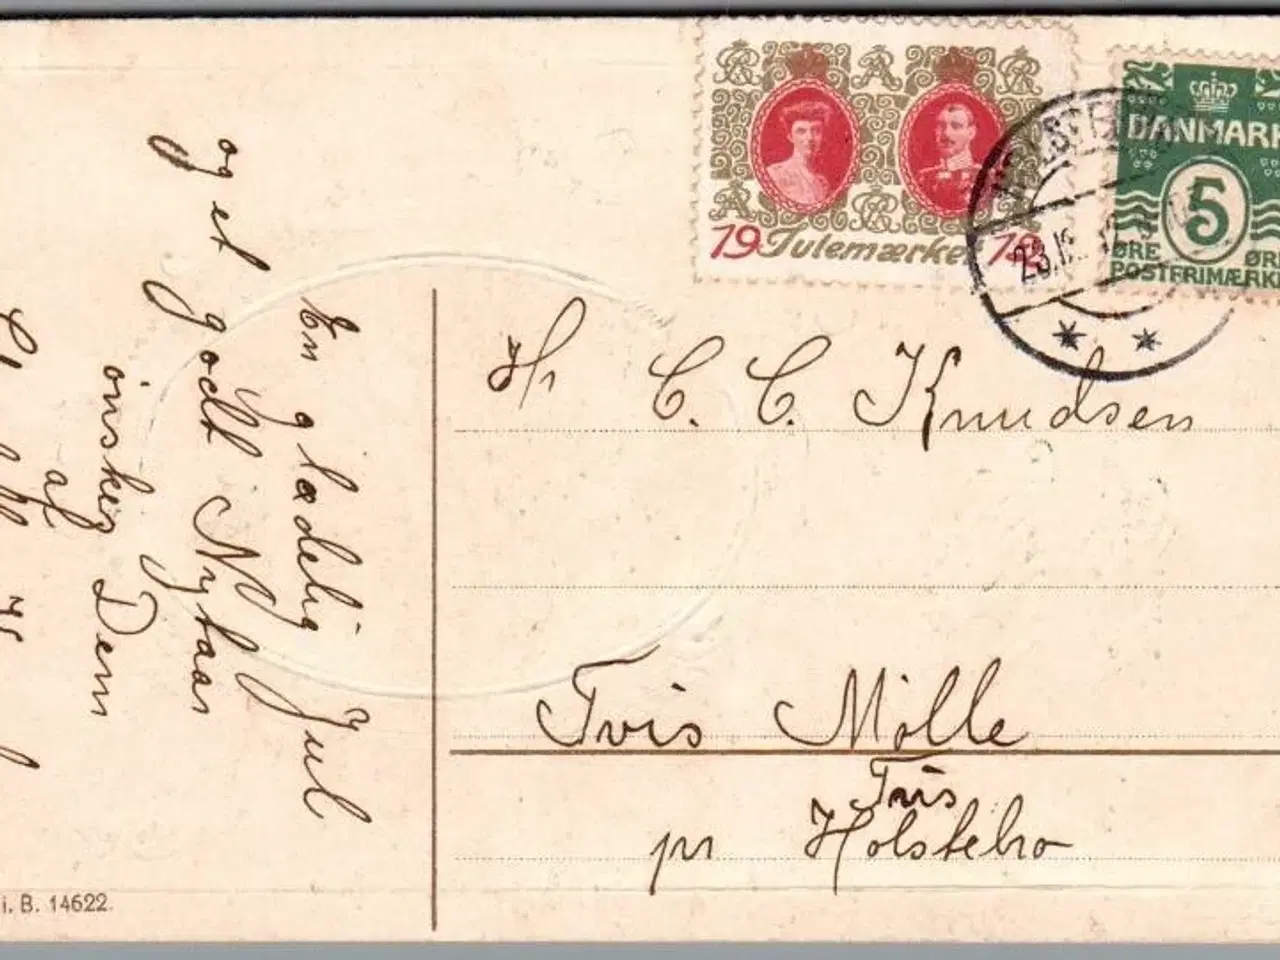 19 Julemærket 12
DANMARK
5
ØRE ØRE
POSTFRIMÆRKE
23.12.
Hr C. C. Knudsen
Tvis Mølle
Tvis
pr Holstebro
En glædelig Jul
og et godt Nytaar
ønskes Dem
af
i. B. 14622.